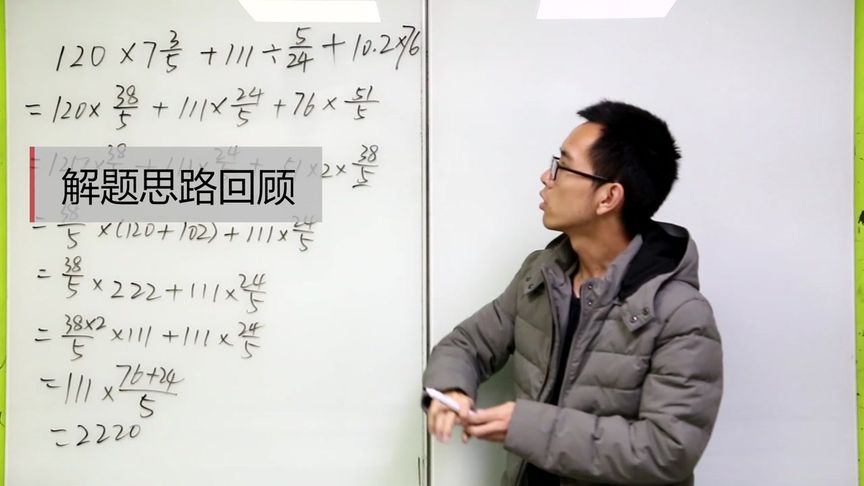 120 × 7 3/5 + 111 ÷ 5/24 + 10.2 × 76
= 120 × 38/5 + 111 × 24/5 + 76 × 51/5
× 2 × 38/5
解题思路回顾
= 38/5 × (120 + 102) + 111 × 24/5
= 38/5 × 222 + 111 × 24/5
= 38×2/5 × 111 + 111 × 24/5
= 111 × 76+24/5
= 2220